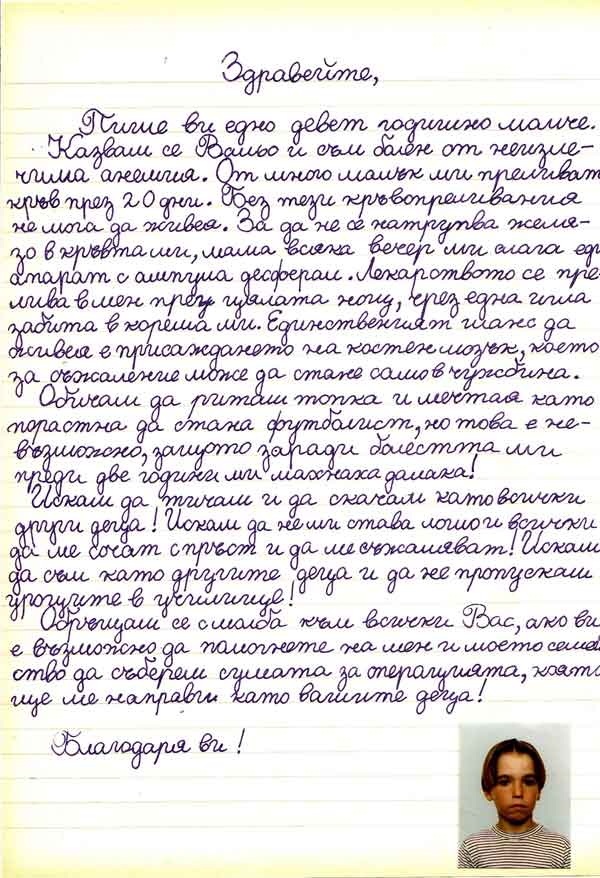 Здравейте,
Пише ви едно девет годишно момче.
Казвам се Вальо и съм болен от неизле-
чима анемия. От много малък ми преливат
кръв през 20 дни. Без тези кръвопреливания
не мога да живея. За да не се натрупва желя-
зо в кръвта ми, мама всяка вечер ми слага ед
апарат с ампула десферал. Лекарството се пре-
лива в мен през цялата нощ, чрез една игла
забита в корема ми. Единственият шанс да
живея е присаждането на костен мозък, което
за съжаление може да стане само в чужбина.
Обичам да ритам топка и мечтая като
порастна да стана футболист, но това е не-
възможно, защото заради болестта ми
преди две години ми махнаха далака!
Искам да тичам и да скачам като всички
други деца! Искам да не ми става лошо и всички
да ме сочат с пръст и да ме съжаляват! Искам
да съм като другите деца и да не пропускам
уроците в училище!
Обръщам се с молба към всички Вас, ако ви
е възможно да помогнете на мен и моето семей
ство да съберем сумата за операцията, която
ще ме направи като вашите деца!
Благодаря ви!